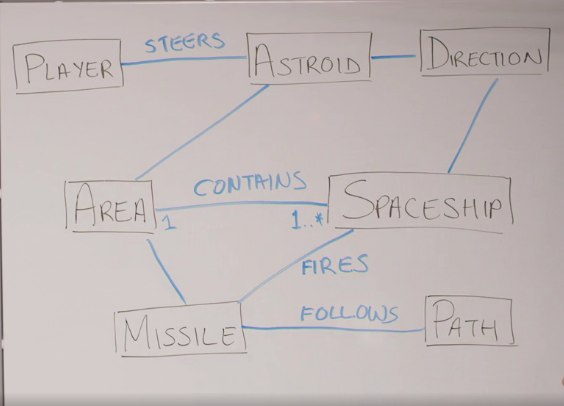 PLAYER STEERS ASTROID DIRECTION
AREA 1 CONTAINS 1..* SPACESHIP
FIRES
MISSILE FOLLOWS PATH